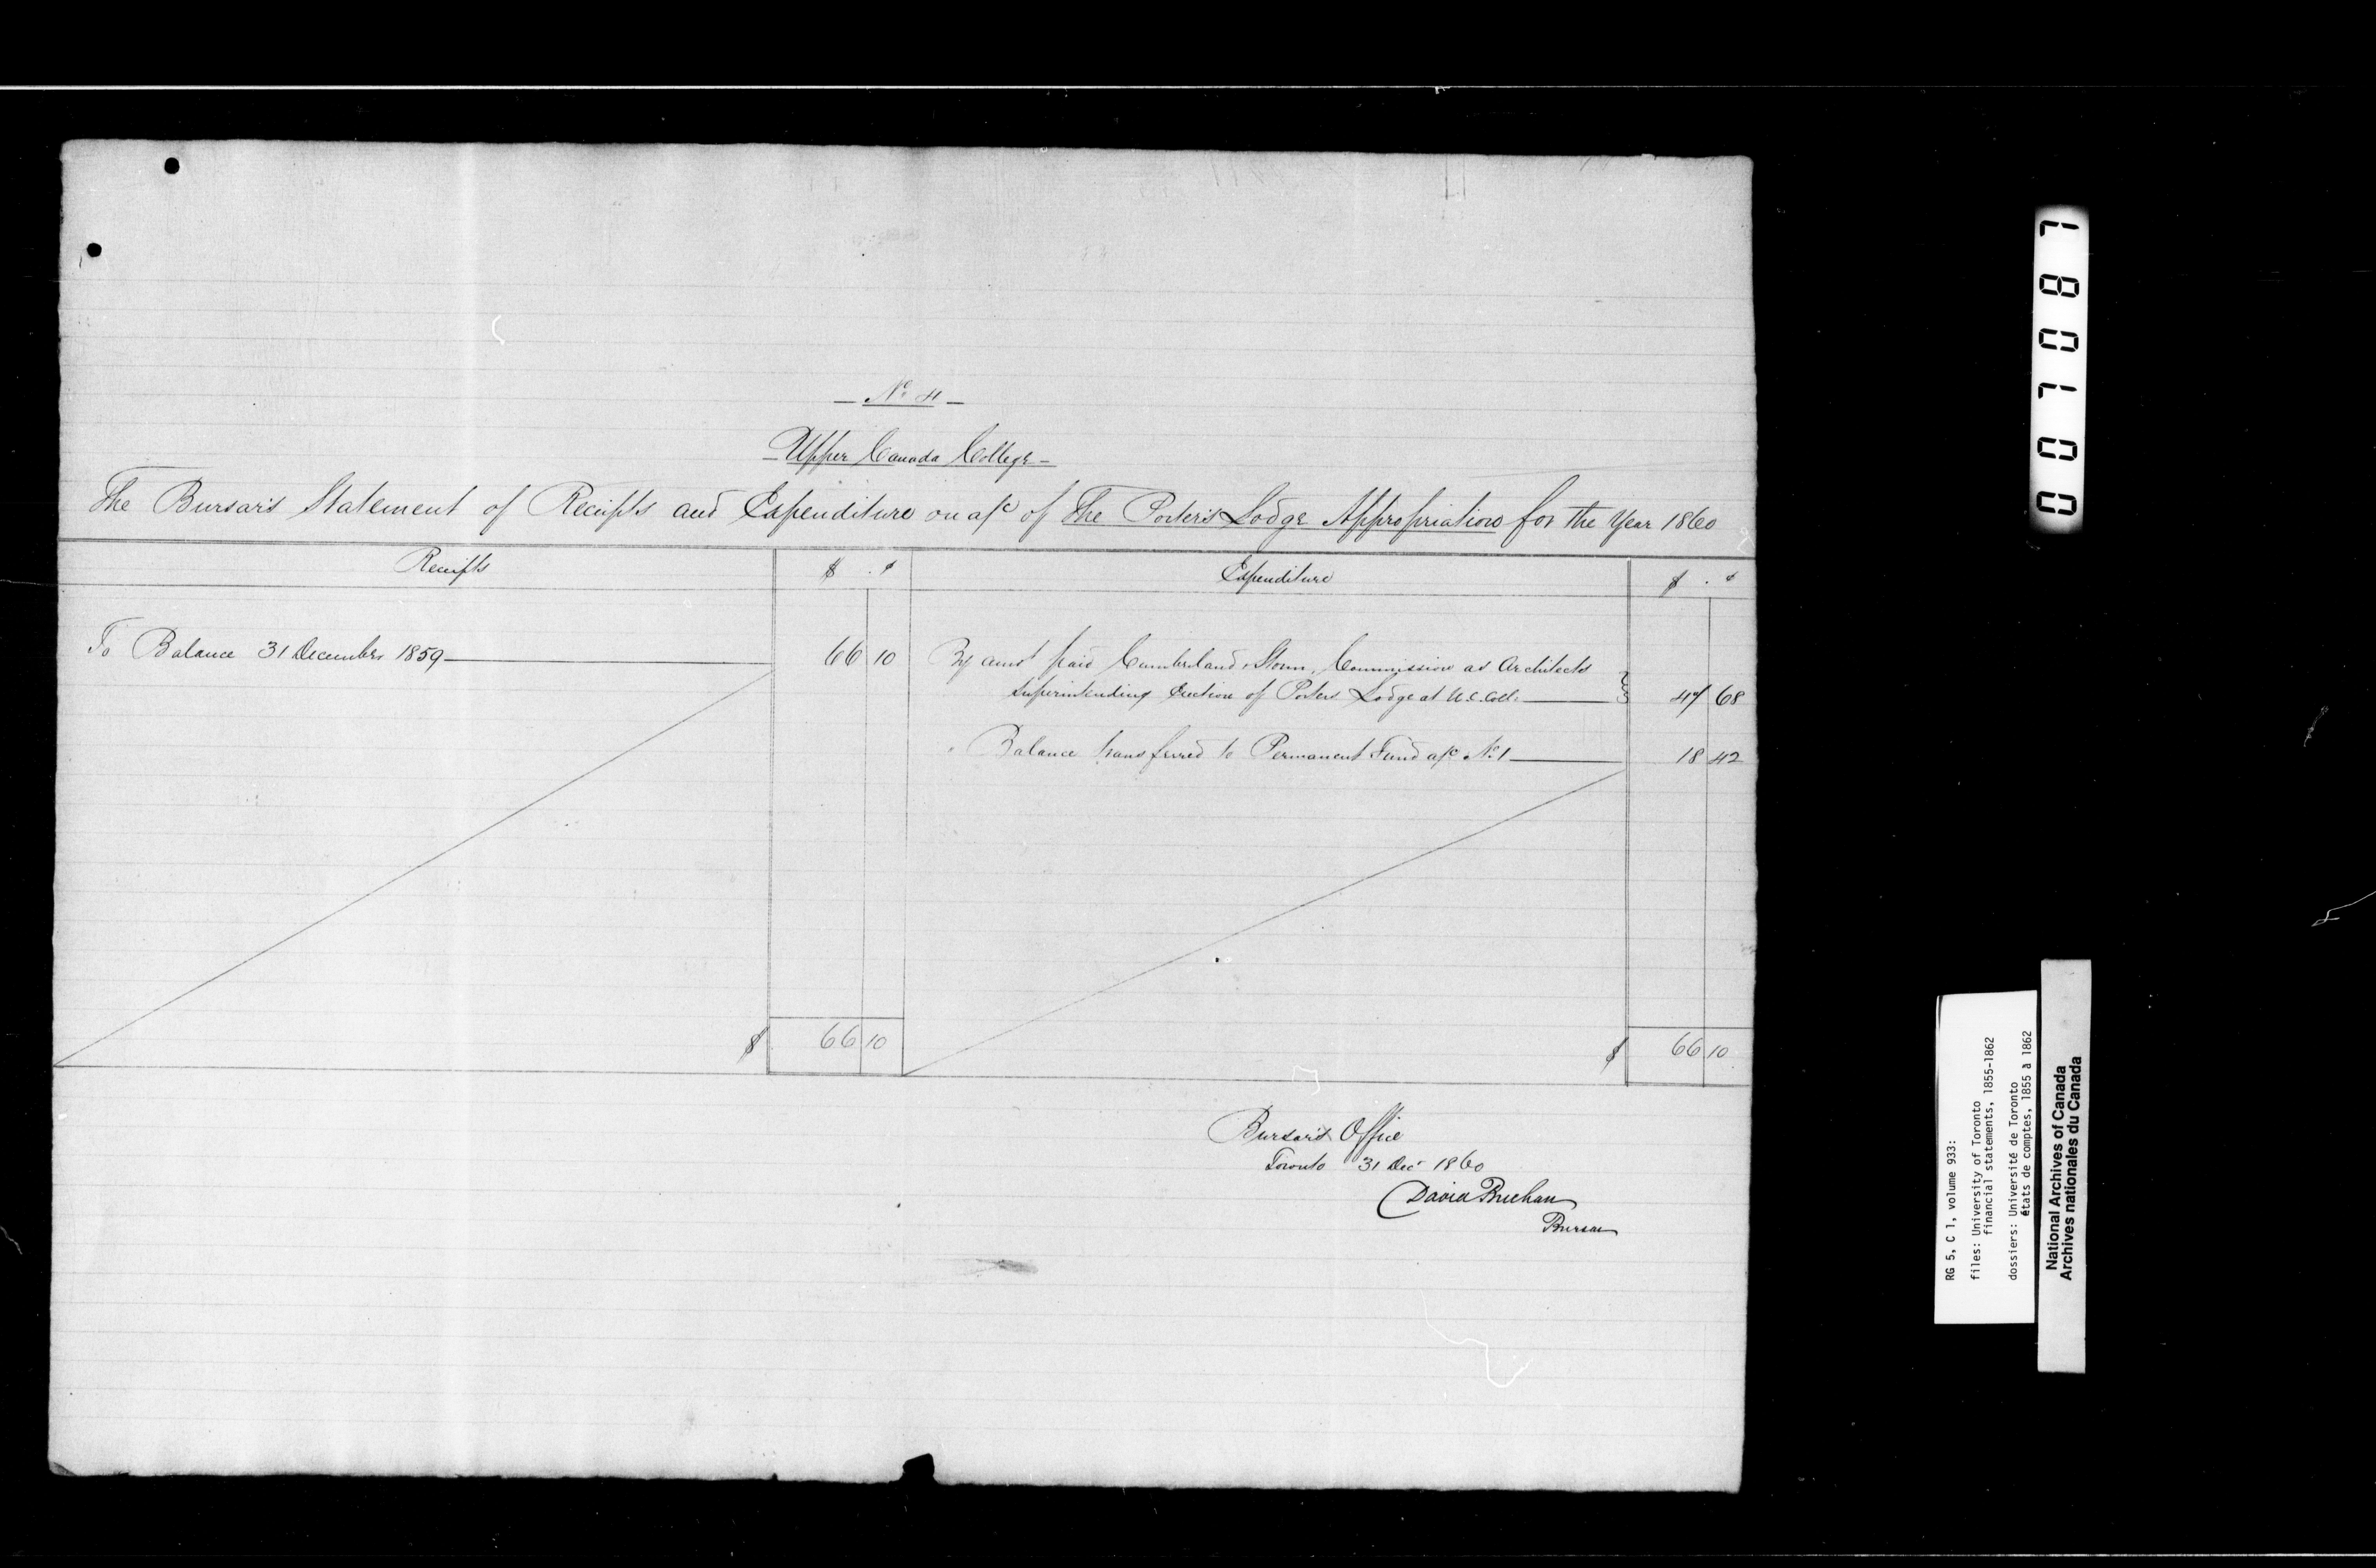 No 4
Upper Canada College
The Bursar's Statement of Receipts and Expenditure on a/c of The Porter's Lodge Appropriation for the Year 1860
Receipts $ ¢ Expenditure $ ¢
To Balance 31 December 1859 66 10
By amot paid Cumberland & Storm, Commission as Architects
superintending Erection of Porters Lodge at U.C. Coll: 47 68
" Balance transferred to Permanent Fund a/c No 1 18 42
$ 66 10 $ 66 10
Bursar's Office
Toronto 31 Dec 1860
David Buchan
Bursar
007087
RG 5, C 1, volume 933:
files: University of Toronto
financial statements, 1855-1862
dossiers: Université de Toronto
états de comptes, 1855 à 1862
National Archives of Canada
Archives nationales du Canada